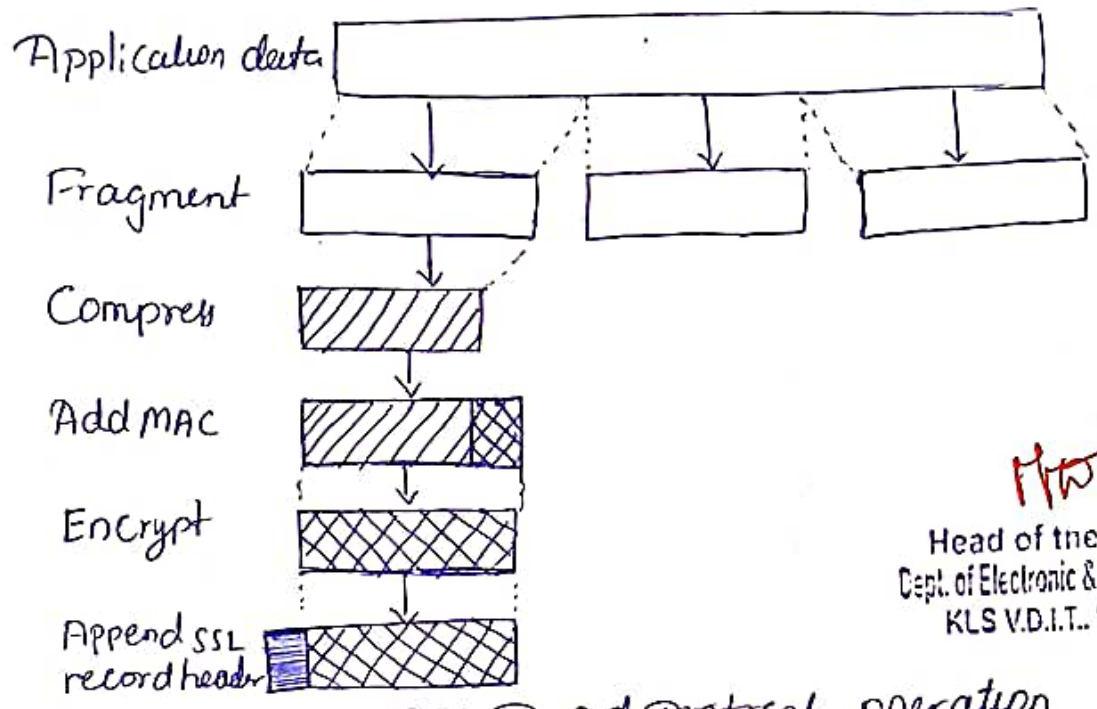 Application data
Fragment
Compress
Add MAC
Encrypt
Append SSL
record header
Head of the
Dept. of Electronic &
KLS V.D.I.T..
Protocol operation